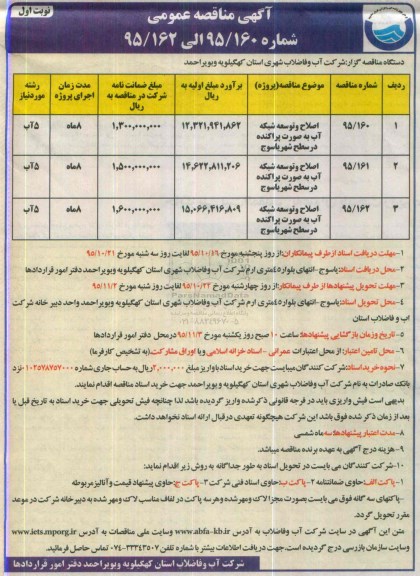 نوبت اول
آگهی مناقصه عمومی
شماره ۹۵/۱۶۰ الی ۹۵/۱۶۲
دستگاه مناقصه گزار: شرکت آب وفاضلاب شهری استان کهگیلویه وبویراحمد.
ردیف شماره مناقصه موضوع مناقصه(پروژه) برآورد مبلغ اولیه به ریال مبلغ ضمانت نامه شرکت در مناقصه به ریال مدت زمان اجرای پروژه رشته موردنیاز
۱ ۹۵/۱۶۰ اصلاح وتوسعه شبکه آب به صورت پراکنده درسطح شهریاسوج ۱۲,۳۲۱,۹۴۱,۸۶۲ ۱,۳۰۰,۰۰۰,۰۰۰ ۸ماه ۵آب
۲ ۹۵/۱۶۱ اصلاح وتوسعه شبکه آب به صورت پراکنده درسطح شهریاسوج ۱۴,۶۲۲,۸۱۱,۲۰۶ ۱,۵۰۰,۰۰۰,۰۰۰ ۸ماه ۵آب
۳ ۹۵/۱۶۲ اصلاح وتوسعه شبکه آب به صورت پراکنده درسطح شهریاسوج ۱۵,۰۶۶,۴۱۶,۸۰۹ ۱,۶۰۰,۰۰۰,۰۰۰ ۸ماه ۵آب
۱-مهلت دریافت اسناد ازطرف پیمانکاران:از روز پنجشنبه مورخ ۹۵/۱۰/۱۶ لغایت روز سه شنبه مورخ ۹۵/۱۰/۲۱
۲-محل دریافت اسناد:یاسوج-انتهای بلوار۴۵متری ارم شرکت آب وفاضلاب شهری استان کهگیلویه وبویراحمد دفتر امور قراردادها
۳-مهلت تحویل پیشنهادها از طرف پیمانکار:از روز چهارشنبه مورخ ۹۵/۱۰/۲۲ لغایت روز شنبه مورخ ۹۵/۱۱/۲
۴-محل تحویل اسناد:یاسوج-انتهای بلوار۴۵متری ارم شرکت آب وفاضلاب شهری استان کهگیلویه وبویراحمد واحد دبیر خانه شرکت
آب و فاضلاب استان
۵-تاریخ وزمان بازگشایی پیشنهادها:ساعت ۱۰ صبح روز یکشنبه مورخ ۹۵/۱۱/۳ درمحل دفتر امور قراردادها
۶-محل تامین اعتبار: از محل اعتبارات عمرانی -اسناد خزانه اسلامی ویا اوراق مشارکت(به تشخیص کارفرما)
۷-نحوه خرید اسناد:شرکت کنندگان میبایست جهت خرید اسناد با واریز مبلغ ۲,۰۰۰,۰۰۰ریال به حساب جاری شماره ۰۱۰۲۵۷۸۷۵۷۰۰۰ نزد
بانک صادرات به نام شرکت آب وفاضلاب شهری استان کهگیلویه وبویراحمد جهت خرید اسناد مناقصه اقدام نمایند.
بدیهی است فیش واریزی باید در فرجه قانونی ذکرشده واریز گردیده باشد لذا چنانچه فیش تحویلی جهت خرید اسناد به تاریخ قبل یا
بعد از زمان ذکر شده فوق باشد این شرکت هیچگونه تعهدی درقبال ارائه اسناد نخواهد داشت.
۸-مدت اعتبار پیشنهادها:سه ماه شمسی
۹-هزینه درج آگهی به عهده برنده مناقصه میباشد.
۱۰-شرکت کنندگان می بایست در تحویل اسناد به طور جداگانه به روش زیر اقدام نماید:
۱-پاکت الف:حاوی ضمانتنامه ۲-پاکت ب:حاوی اسناد فنی شرکت ۳-پاکت ج:حاوی پیشنهاد قیمت وآنالیز مربوطه
-پاکتهای سه گانه فوق می بایست بصورت مجزا لاک ومهر شده وهرسه پاکت در لفاف مناسب لاک ومهر شده به دبیرخانه شرکت در موعد
مقرر تحویل گردد.
متن این آگهی در سایت شرکت آب وفاضلاب به آدرس www.abfa-kb.ir وسایت ملی مناقصات به آدرس www.iets.mporg.ir
وسایت سازمان بازرسی درج گردیده است.جهت دریافت اطلاعات بیشتر با شماره تلفن ۳۳۳۴۳۵۰۷-۰۷۴ تماس حاصل فرمائید.
شرکت آب وفاضلاب استان کهگیلویه وبویراحمد دفتر امور قراردادها